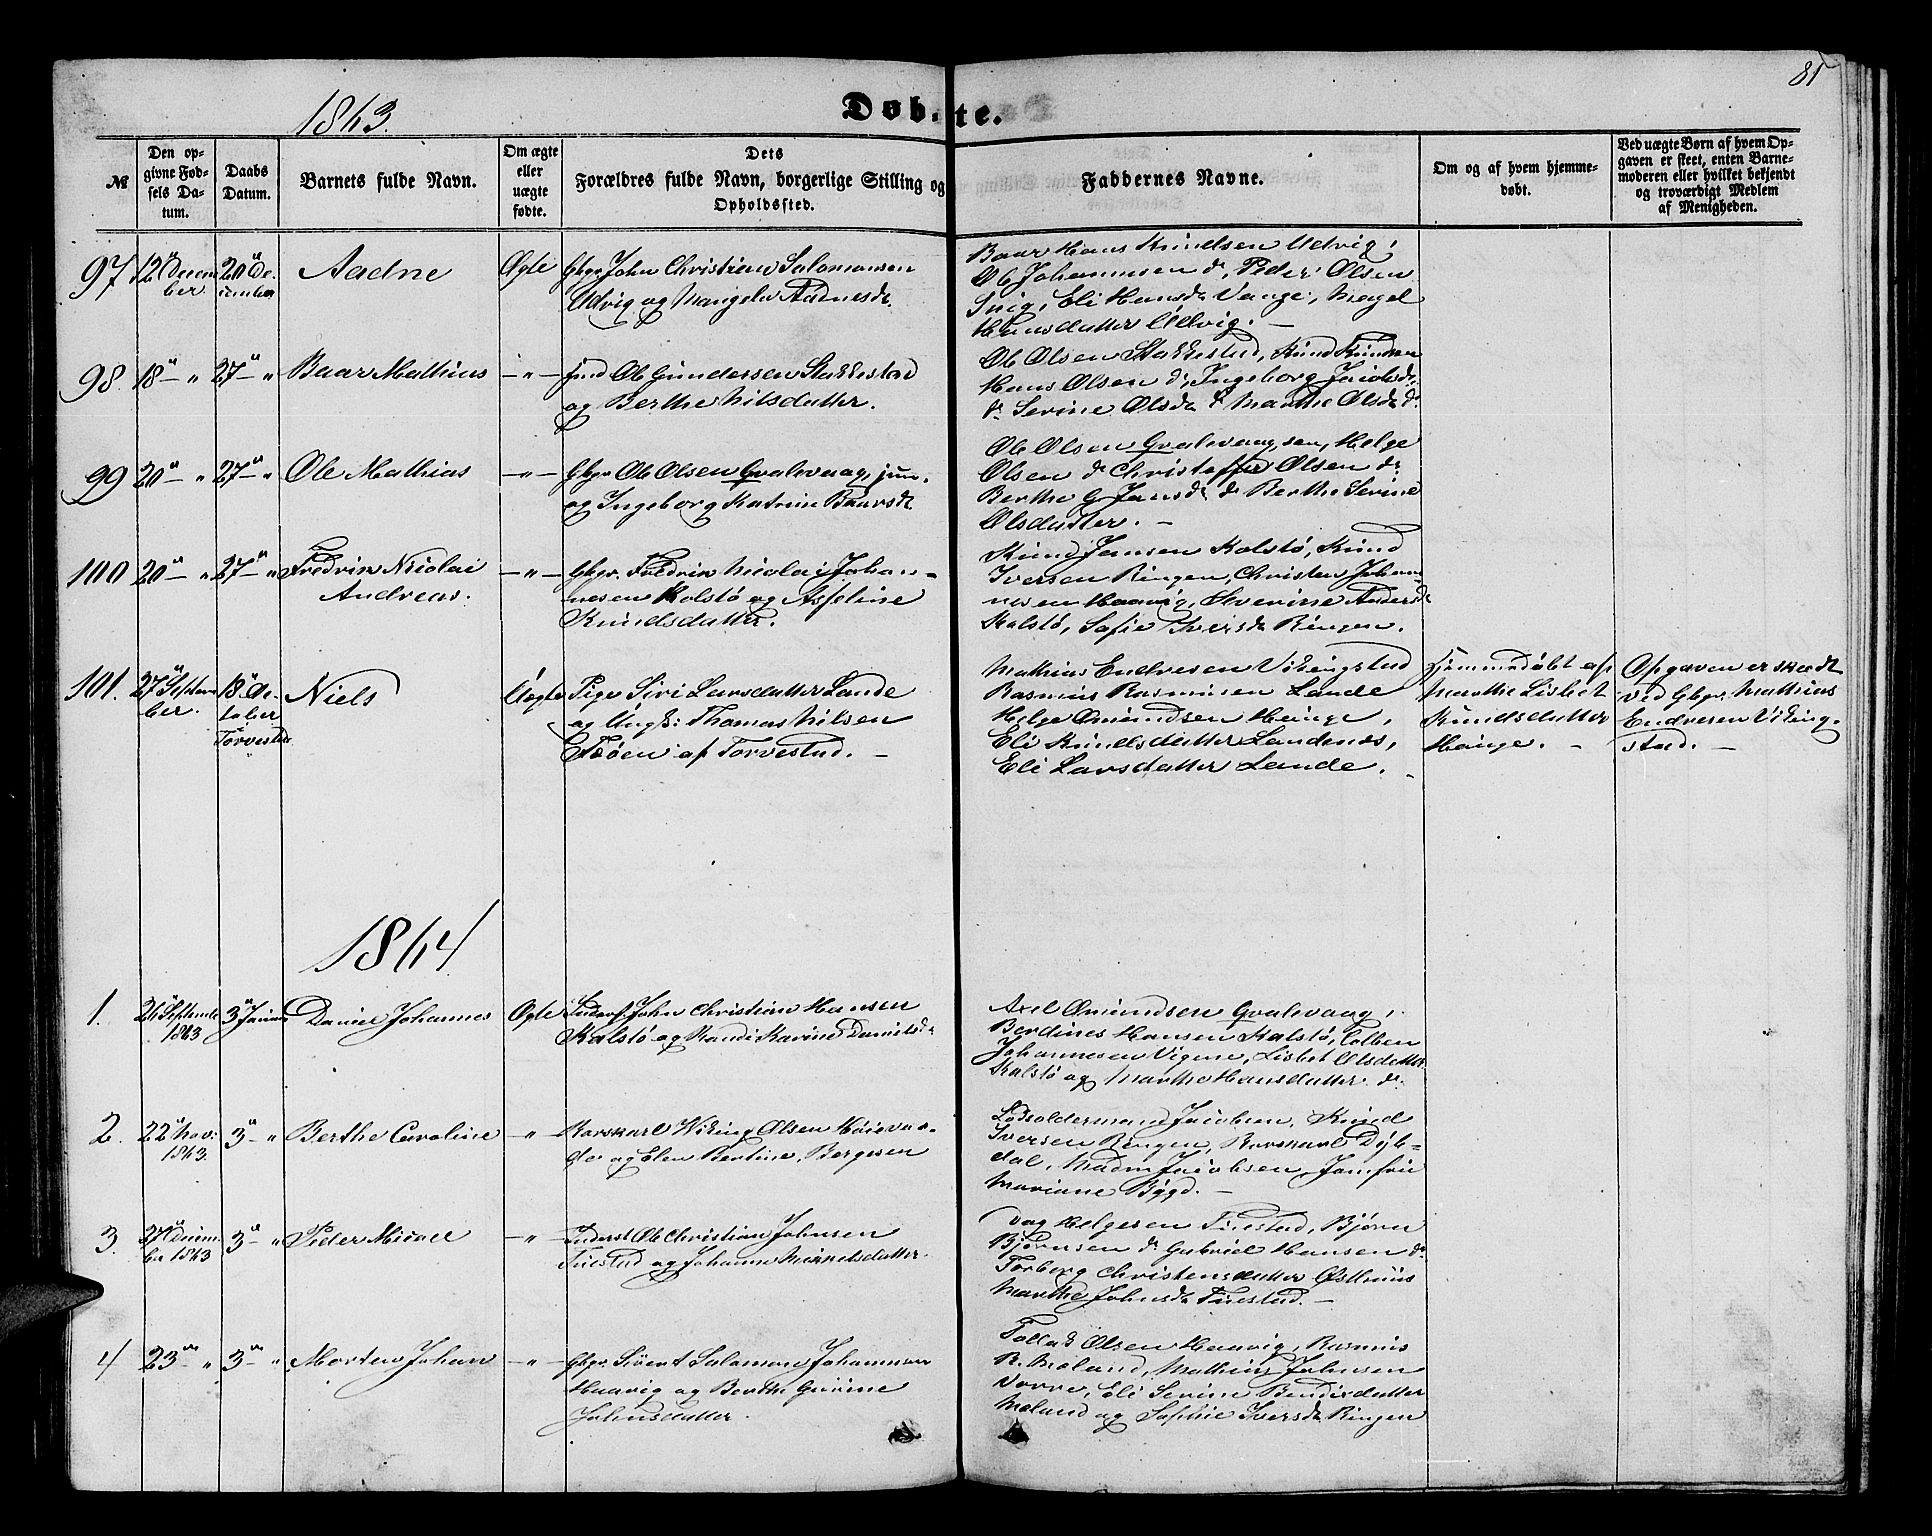 81
1863.
Døbte.
№
Den opgivne Fødsels Datum.
Daabs Datum.
Barnets fulde Navn.
Om ægte eller uægte fødte.
Dets Forældres fulde Navn, borgerlige Stilling og Opholdssted.
Faddernes Navne.
Om og af hvem hjemmedøbt.
Ved uægte Børn af hvem Opgaven er skeet, enten Barnemoderen eller hvilket bekjendt og troværdigt Medlem af Menigheden.
97 12 Decem 20 De- Aadne Ægte Gbgr John Christian Salomonsen
ber cember Udvig og Mangela Aadnesdr.
Baar Hans Knudsen Udvig,
Ole Johannesen dr, Peder Olsen
Eli Hansdr Vange, Magel
Hansdatter Udvig. —
98. 18 — " 27 — " Baar Mathias — " — Ole Gundersen Stakkestad
og Berthe Nilsdatter.
Ole Olsen Stakkestad, Knud Knudsen
Hans Olsen do, Ingeborg Jacobsdr
do Serine Olsdr do Marthe Olsdr do
99 20 — " 27 — " Ole Mathias — " — Gbgr Ole Olsen Gvalevaag, jun.
og Ingeborg Katrine Baarsdr
Ole Olsen Gvalevaag, sen, Helge
Olsen do Christoffer Olsen do
Berthe G Jansdr do Berthe Serine
Olsdatter. —
100 20 — " 27 — " Fredrik Nicolai — " — Gbgr. Fredrik Nicolai Johan-
Andreas. nesen Kolstø og Asseline
Knudsdatter.
Knud Jansen Kolstø, Knud
Iversen Ringen, Christen Johan-
nesen Haavig, Severine Andersdr
Kalstø, Sofie Iversdr Ringen.
101. 27 Septem 18 Oc- Niels Uægte Pige Siri Larsdatter Lande
ber. tober og Ungk: Thomas Nilsen
Torvestad Fæøen af Torvestad. —
Mathias Endresen Vikingstad
Rasmus Rasmusen Lande
Helge Omundsen Hauge,
Eli Knudsdatter Landenæs,
Eli Larsdatter Lande.
Hjemmedøbt af
Marthe Lisbet
Knudsdatter
Hauge. —
Opgaven er skeedt
ved Gbgr. Mathias
Endresen Viking-
stad. —
1864
1. 26 Septembr 3 Januar Daniel Johannes Ægte Inderst John Christian Hansen
1863 Kalstø og Randi Karine Danielsdr
Axel Omundsen Gvalevaag,
Berdines Hansen Kalstø, Tolben
Johannesen Vigene, Lisbet Olsdatter
Kalstø og Marthe Hansdatter do.
2. 22 Nov. 3 — " Berthe Caroline — " — Karskarl Wiking Olsen Høieva-
1863. de og Elen Bertine Bergesen
Lodsoldermand Jacobsen, Knud
Iversen Ringen, Karskarl Dyb-
dal, Madm Jacobsen, Jomfru
Mariane Bygd. —
3. 27 Decem 3 — " Peder Micael — " — Inderst Ole Christian Johnsen
ber 1863 Tuestad og Johanne Mikkelsdatter.
Dag Helgesen Tuestad, Bjørn
Bjørnsen do Gabriel Hansen do
Torborg Christensdatter Østhuus
Marthe Johnsdr Tuestad. —
4 23 — " 3 — " Morten Johan — " — Gbgr. Sivert Salomon Johannesen
Haavig og Berthe Gurine
Johnsdatter.
Tollak Olsen Haavig, Rasmus
R. Moland, Mathias Johnsen
Vorre, Eli Serine Bendixdatter
Moland og Sophie Iversdr Ringen